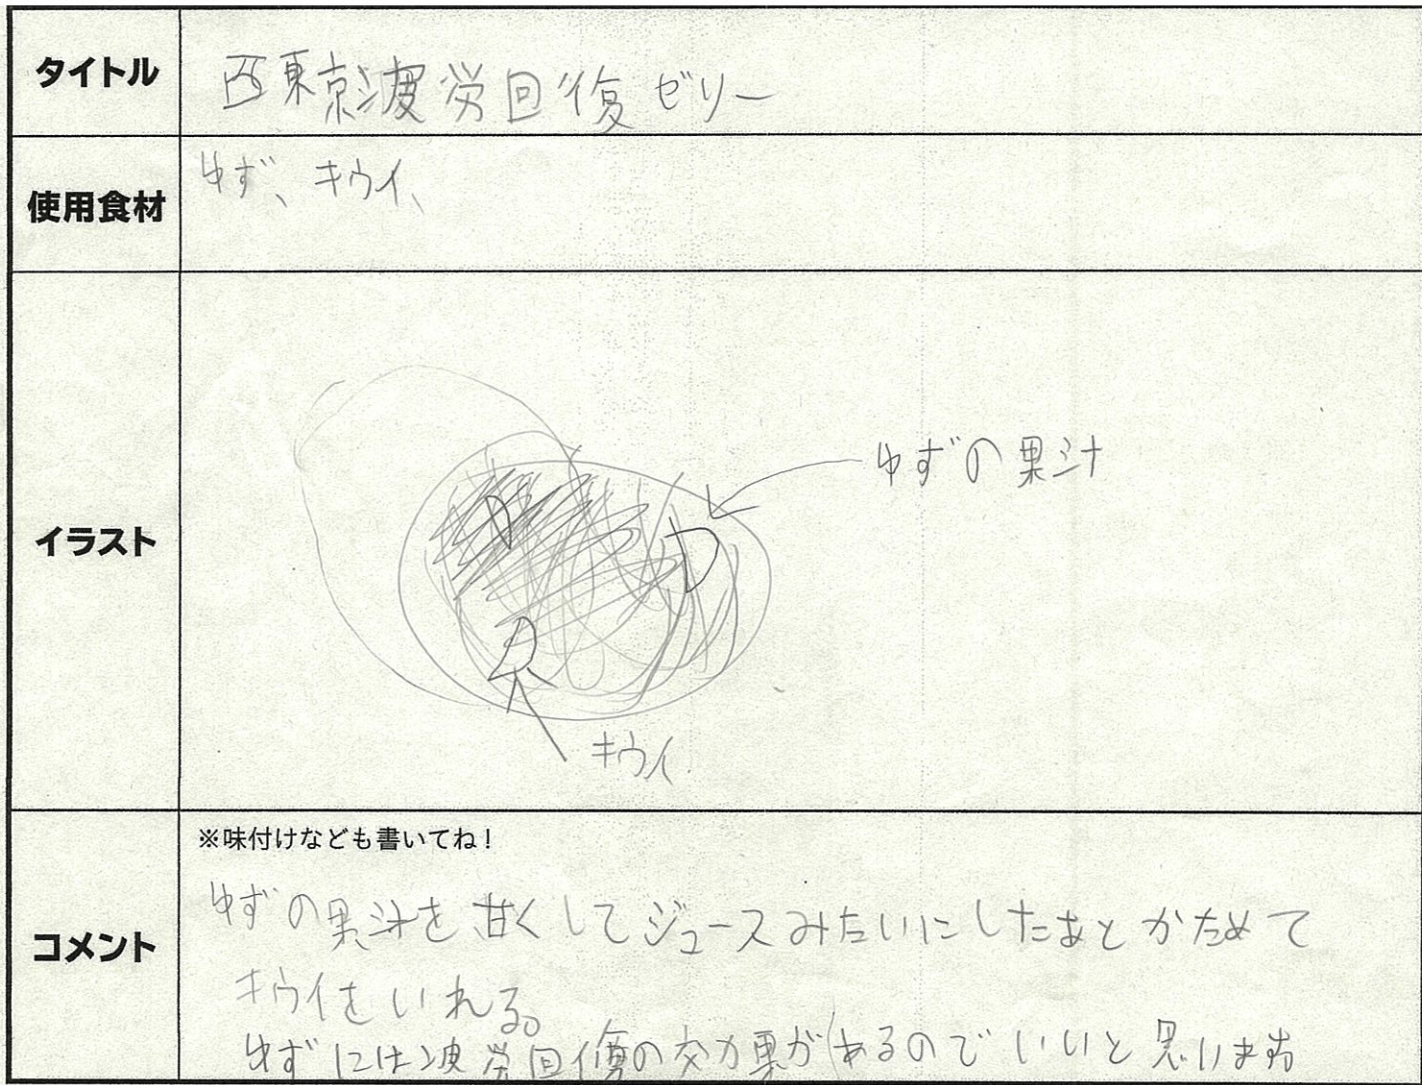 タイトル
西東京疲労回復ゼリー
使用食材
ゆず、キウイ、
イラスト
ゆずの果汁
キウイ
コメント
※味付けなども書いてね！
ゆずの果汁を甘くしてジュースみたいにしたあとかためて
キウイをいれる。
ゆずには疲労回復の効果があるのでいいと思います